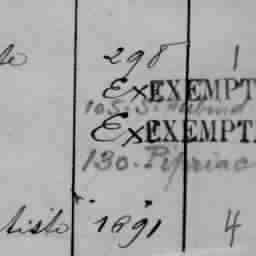 te 298 1
Ex EXEMPT
105.S.
Ex EXEMPT.
130. Pipriac
tiste 1691 4